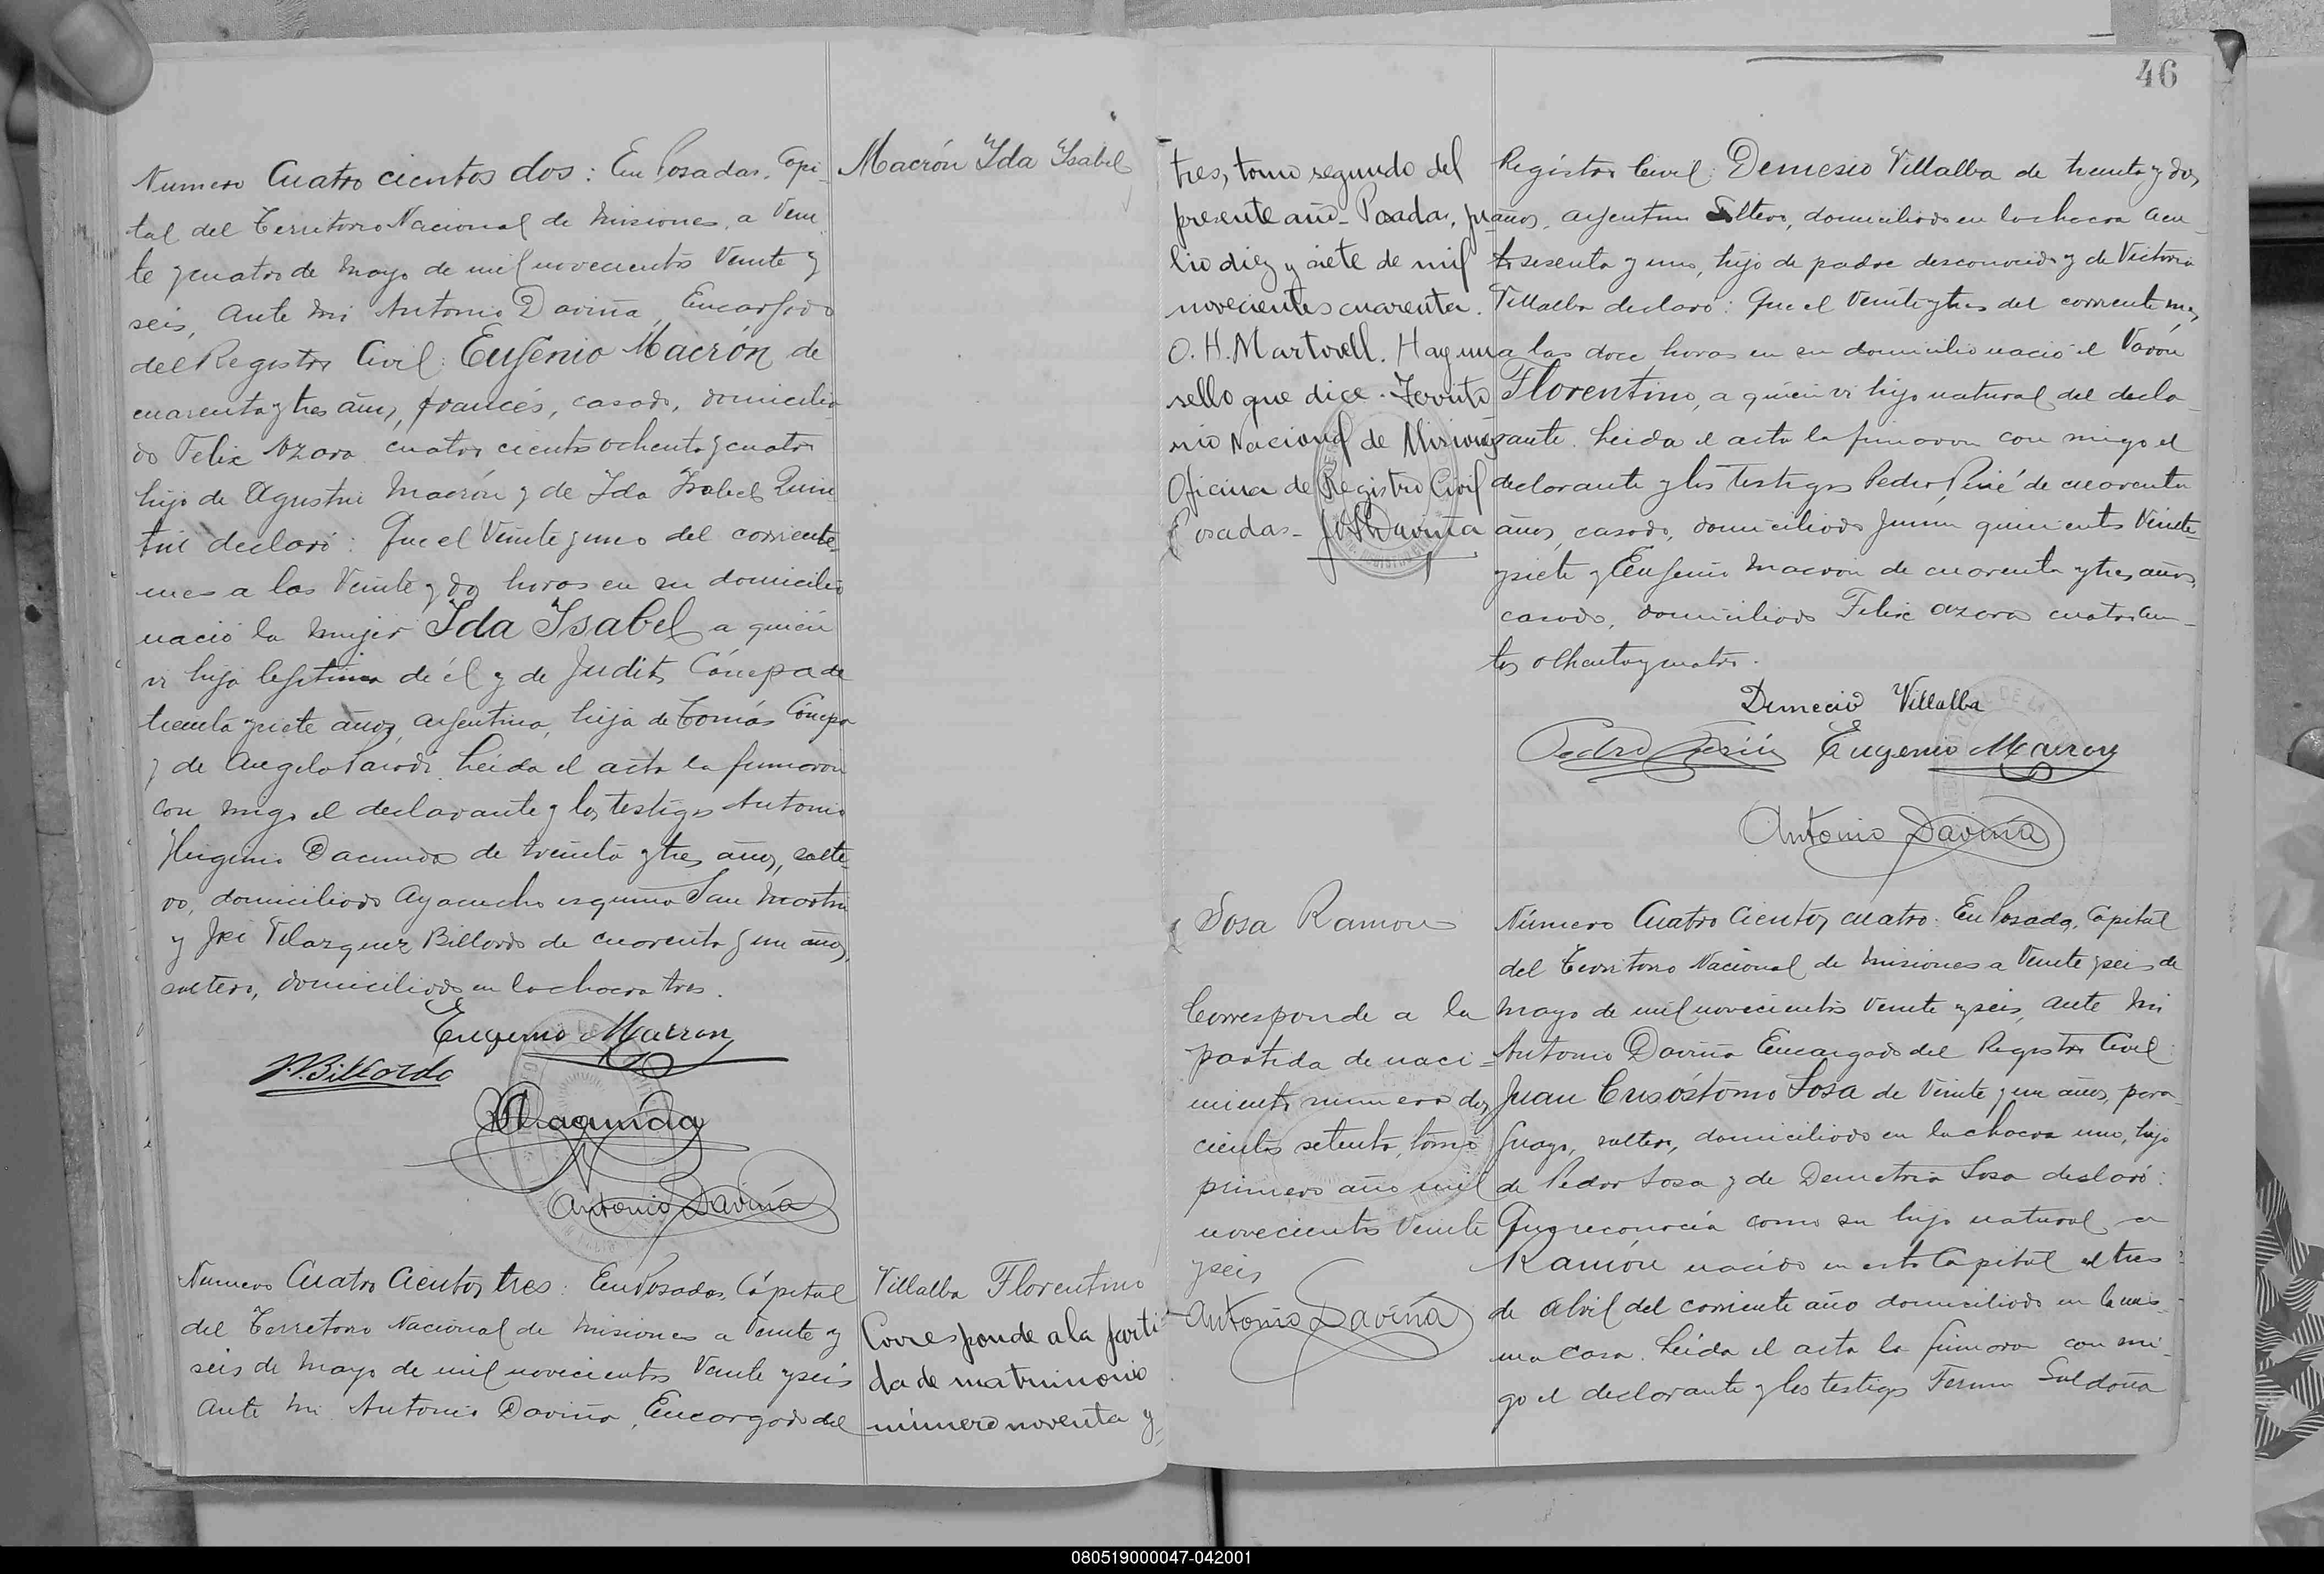 Numero Cuatro cientos dos: En Posadas, Capi-
tal del Territorio Nacional de Misiones, a Vein
te y cuatro de Mayo de mil novecientos Veinte y
seis, Ante mi Antonio Daviña, Encargado
del Registro Civil: Eugenio Macrón de
cuarenta y tres años, francés, casado, domicilia
do Felix Azara cuatro cientos ochenta y cuatro
hijo de Agustin Macrón y de Ida Isabel
declaró: Que el Veinte y uno del corriente
mes a las Veinte y dos horas en su domicilio
nació la mujer Ida Isabel a quién
vi hija legitima de él y de Judit Cónepa de
treinta y siete años, argentina, hija de Tomás Cónepa
y de Angela Parodi. Leida el acta la firmaron
con migo el declarante y los testigos Antonio
Higinio Dacunda de treinta y tres años, solte-
ro, domiciliado Ayacucho esquina San Martin
y José Velazquez Billordo de cuarenta y un años,
soltero, domiciliado en la chacra tres.
Eugenio Macron
J.V.Billordo
Dacunda
Antonio Daviña
Macrón Ida Isabel
Numero Cuatro Cientos tres: En Posadas, Cápital
del Territorio Nacional de Misiones a Veinte y
seis de Mayo de mil novecientos Veinte y seis
Ante mi Antonio Daviña, Encargado del
Villalba Florentino
Corresponde a la parti
da de matrimonio
número noventa y
46
tres, tomo segundo del
presente año - Posadas, ju
lio diez y siete de mil
novecientos cuarenta.
O. H. Martorell. Hay un
sello que dice. Territo
rio Nacional de Misiones
Oficina de Registro Civil
Posadas - Daviña
Registro Civil: Demesio Villalba de treinta y dos
años, argentino Soltero, domiciliado en la chacra cien-
to sesenta y uno, hijo de padre desconocido y de Victoria
Villalba declaró: Que el Veinte y tres del corriente mes,
a las doce horas en su domicilio nació el Varón
Florentino, a quién vi hijo natural del decla-
rante. Leida el acta la firmaron con migo el
declarante y los testigos Pedro de cuarenta
años, casado, domiciliado Junin quinientos Veinte-
y siete y Eugenio Macron de cuarenta y tres años,
casado, domiciliado Felix Azara cuatrocien-
tos ochenta y cuatro.
Demecio Villalba
Pedro Eugenio Macron
Antonio Daviña
Sosa Ramon
Corresponde a la
partida de naci-
miento numero dos
cientos setenta, tomo
primero año mil
novecientos Veinte
y seis
Antonio Daviña
Número Cuatro Cientos cuatro: En Posadas, Capital
del Territorio Nacional de Misiones a Veinte y seis de
Mayo de mil novecientos Veinte y seis, Ante mi
Antonio Daviña Encargado del Registro Civil:
Juan Crisóstomo Sosa de Veinte y un años, para-
guayo, soltero, domiciliado en la chacra uno, hijo
de Pedro Sosa y de Demetria Sosa declaró:
Que reconocía como su hijo natural a
Ramón nacido en esta Capital el tres
de Abril del corriente año domiciliado en la mis-
ma casa. Leida el acta la firmaron con mi-
go el declarante y los testigos Fermin Saldaña
080519000047-042001